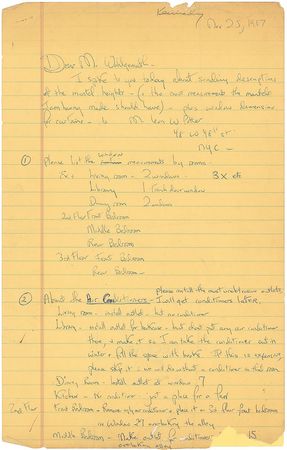 Nov 25, 1957
Dear Mr.
I spoke to you today about sending descriptions
of the mantel heights - (or the new measurements the mantels
should have) - plus window dimensions
for curtains - to Mr
48 W 48th St
NYC -
① Please list the window measurements by rooms
Living room - 2 windows 3 x etc
Library 1 window
Dining room 2 windows
2nd Floor Front Bedroom
Middle Bedroom
Rear Bedroom
3rd Floor Front Bedroom
Rear Bedroom -
② About the Air Conditioners - please install the most outlets
I will get conditioners later.
Living room - install outlet - but no conditioner
Library - install outlet for but don't put any air conditioner
there, & make it so I can take the conditioner out in
winter & fill the space with bricks If this is expensive,
please skip it - we will do without a conditioner in this room
Dining Room - Install outlet at window 7
Kitchen - No conditioner just a place for a fan
2nd Floor Front Bedroom - Remove my air conditioner & place it in 3rd floor front bedroom
in window 21 overlooking the alley
Middle Bedroom - Make outlet for conditioner 15
overlooking alley